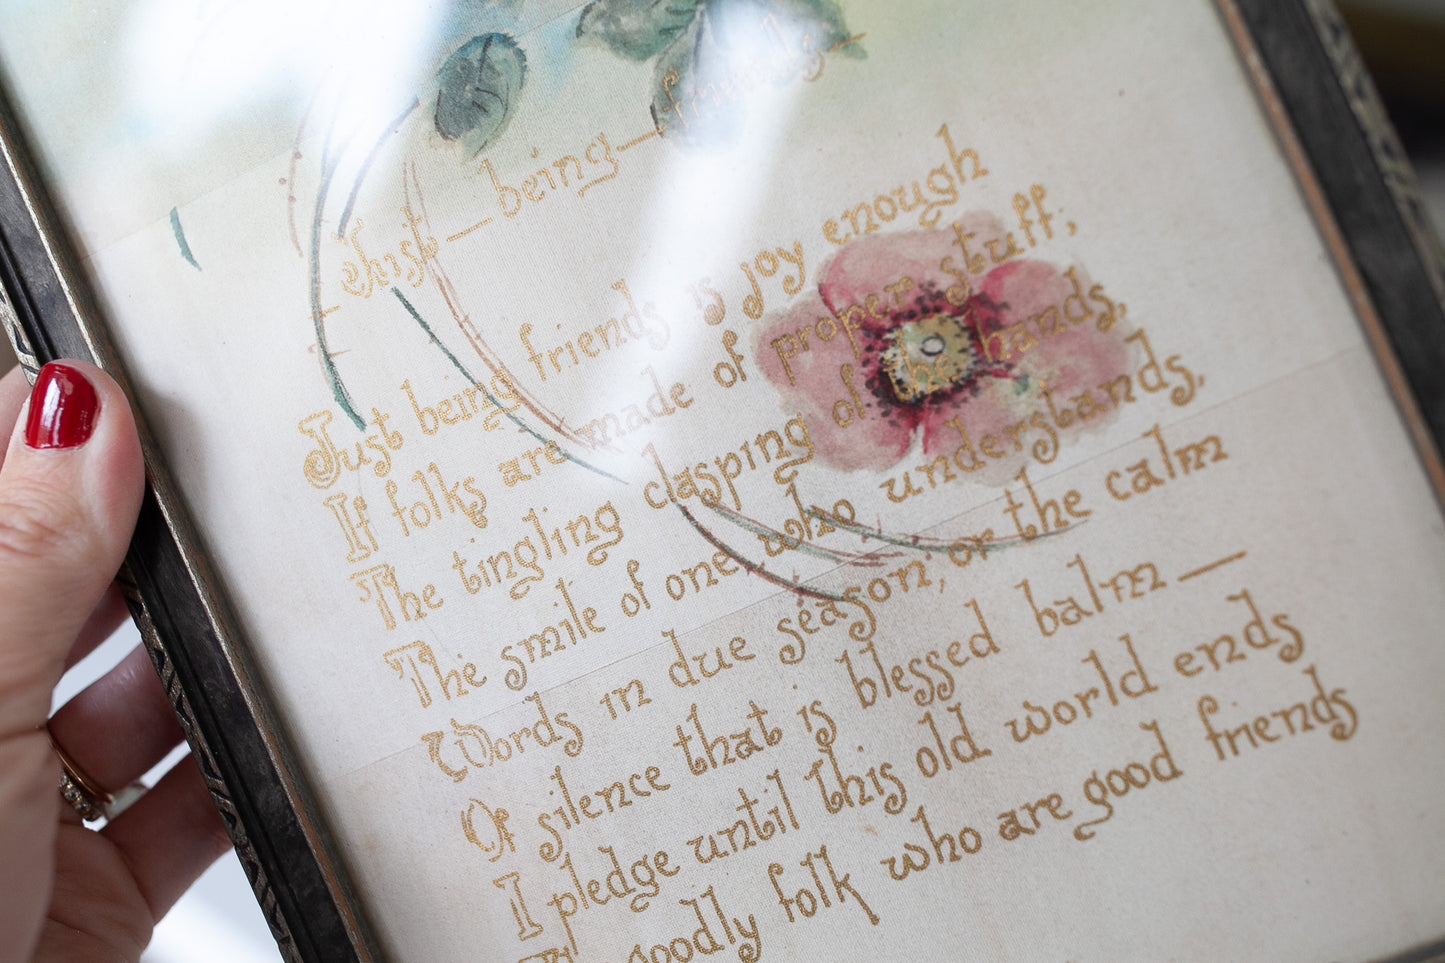 Just—being—friends—
Just being friends is joy enough
If folks are made of proper stuff;
The tingling clasping of the hands,
The smile of one who understands,
Words in due season, or the calm
Of silence that is blessed balm—
I pledge until this old world ends
goodly folk who are good friends